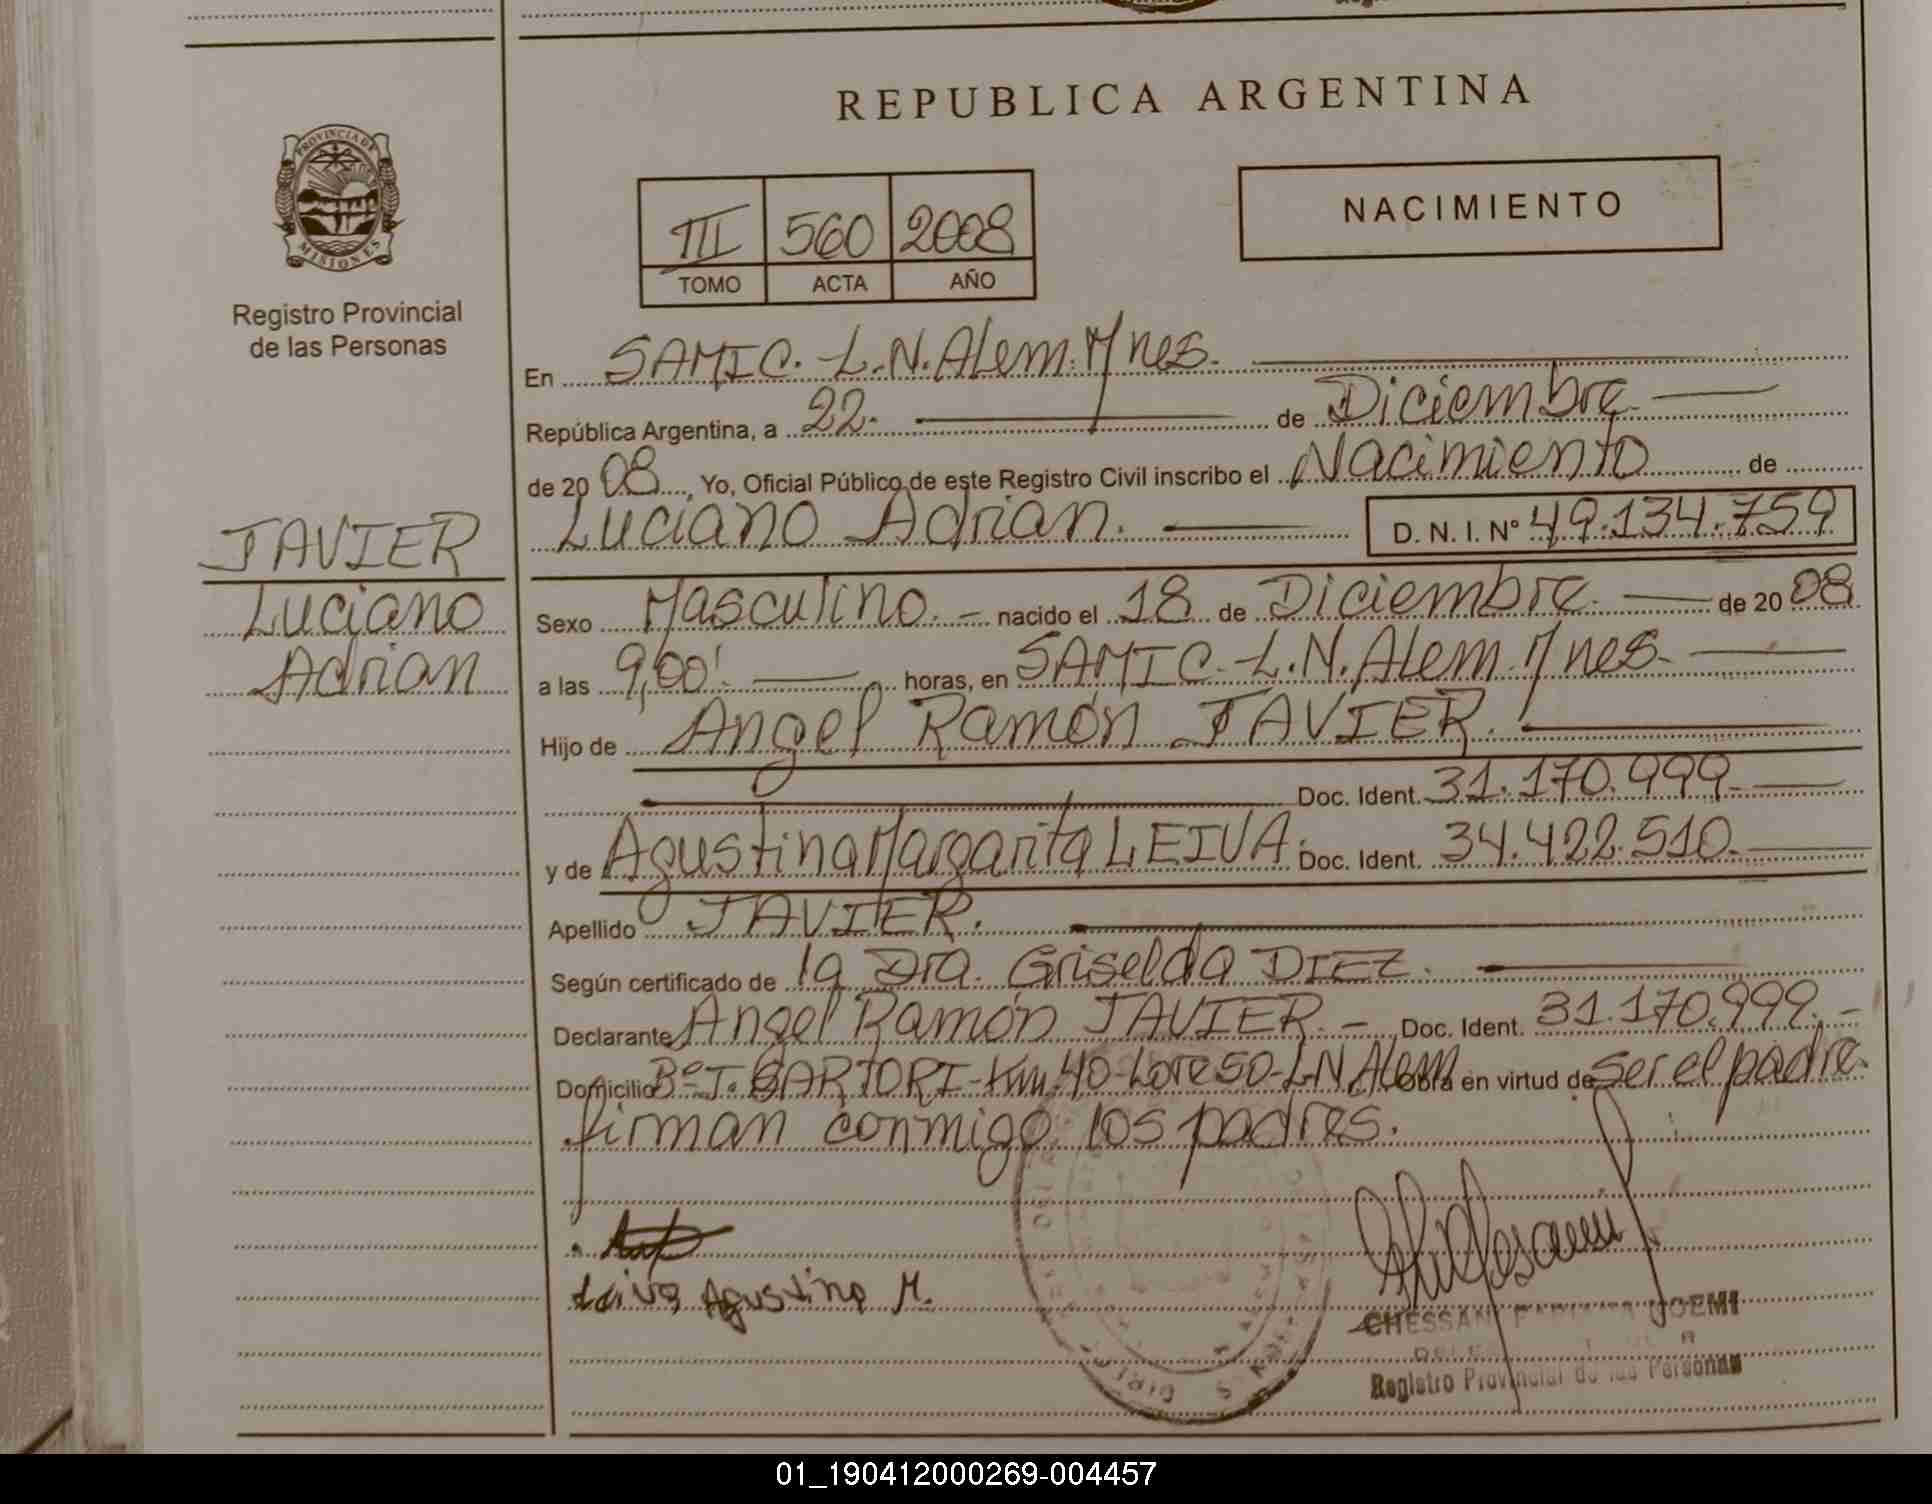 REPUBLICA ARGENTINA
PROVINCIA DE
MISIONES
Registro Provincial
de las Personas
III 560 2008
TOMO ACTA AÑO
NACIMIENTO
En SAMIC. L.N. ALem. Mnes.
República Argentina, a 22. de Diciembre
de 2008, Yo, Oficial Público de este Registro Civil inscribo el Nacimiento de
Luciano Adrian. D. N. I. N° 49.134.759
JAVIER
Luciano
Adrian
Sexo Masculino. nacido el 18 de Diciembre. de 2008
a las 9,00'. horas, en SAMIC. L.N. ALem. Mnes.
Hijo de Angel Ramón JAVIER.
Doc. Ident. 31.170.999.
y de Agustina Margarita LEIVA. Doc. Ident. 34.422.510.
Apellido JAVIER.
Según certificado de la Dra. Griselda DIEZ.
Declarante Angel Ramón JAVIER. Doc. Ident. 31.170.999.
Domicilio B° J. SARTORI - Km. 40 - LN Alem Obra en virtud de ser el padre.
firman conmigo los padres.
Leiva Agustina M.
CHESSANI NOEMI
Registro Provincial de las Personas
01_190412000269-004457